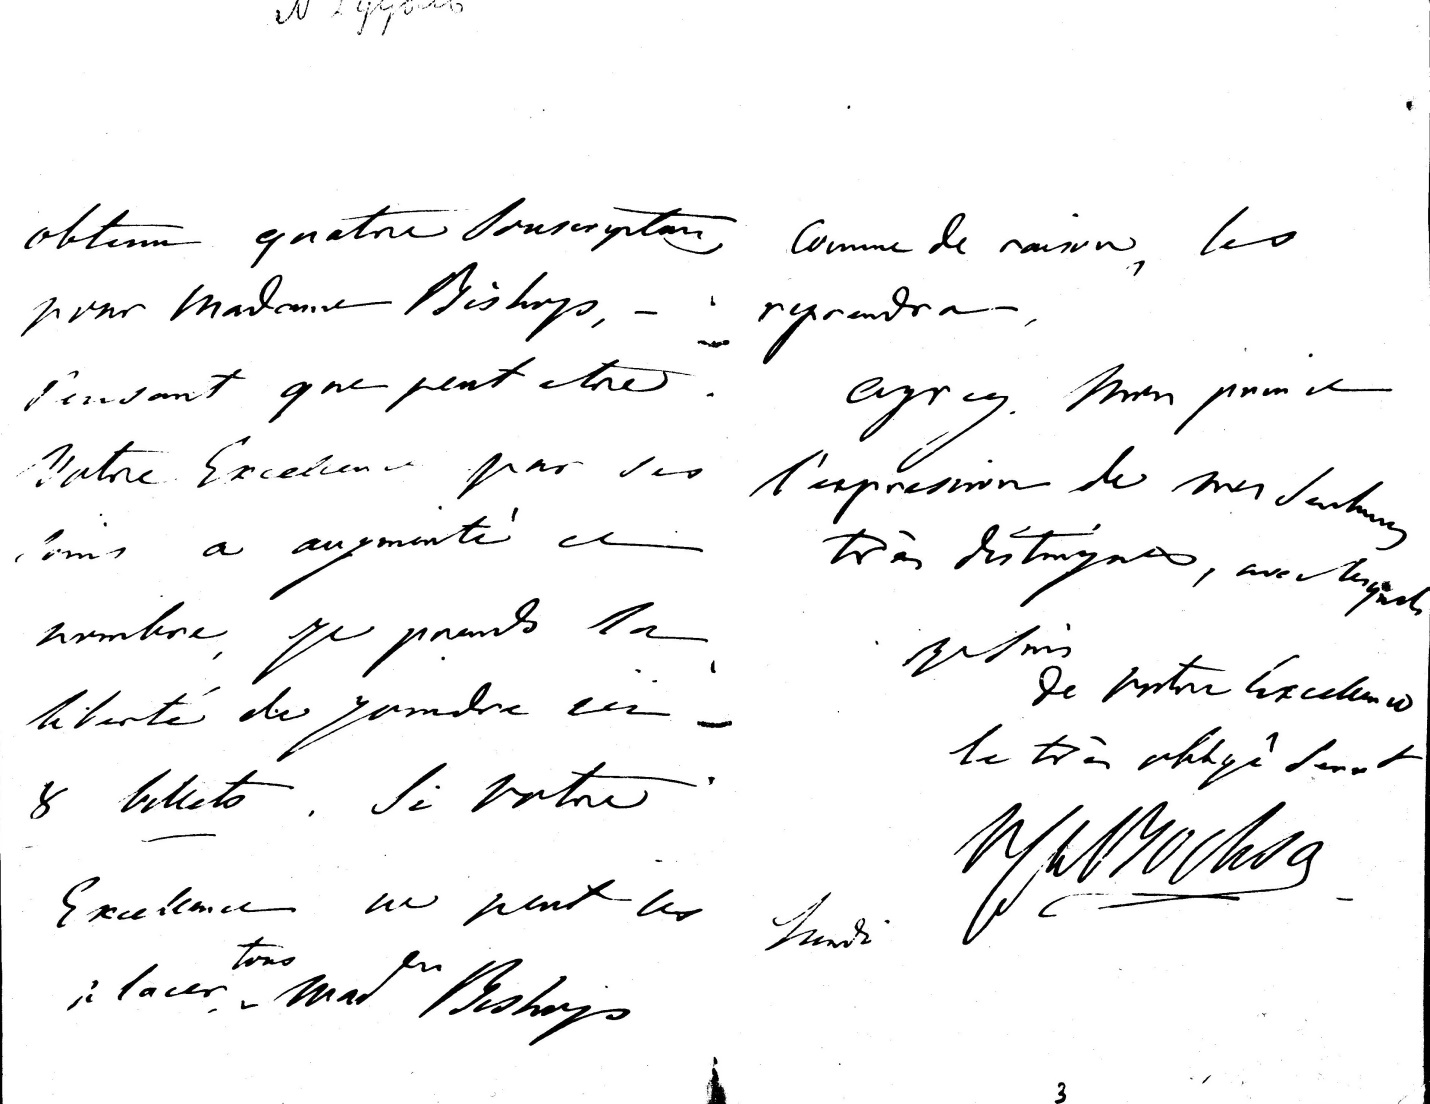 obtenu quatre Souscripteurs
pour Madame Bishop, –
Pensant que peut etre
Votre Excellence par ses
soins a augmenté ce
nombre, je prends la
liberté de joindre ici
8 billets. Si votre
Excellence ne peut les
placer tous, Madme Bishop
comme de raison, les
reprendra.
agreez, Mon prince
l'expression de mes sentimens
très distingués, avec lesquels
je suis
de votre Excellence
le très obligé Servt
Bochsa
Lundi
3